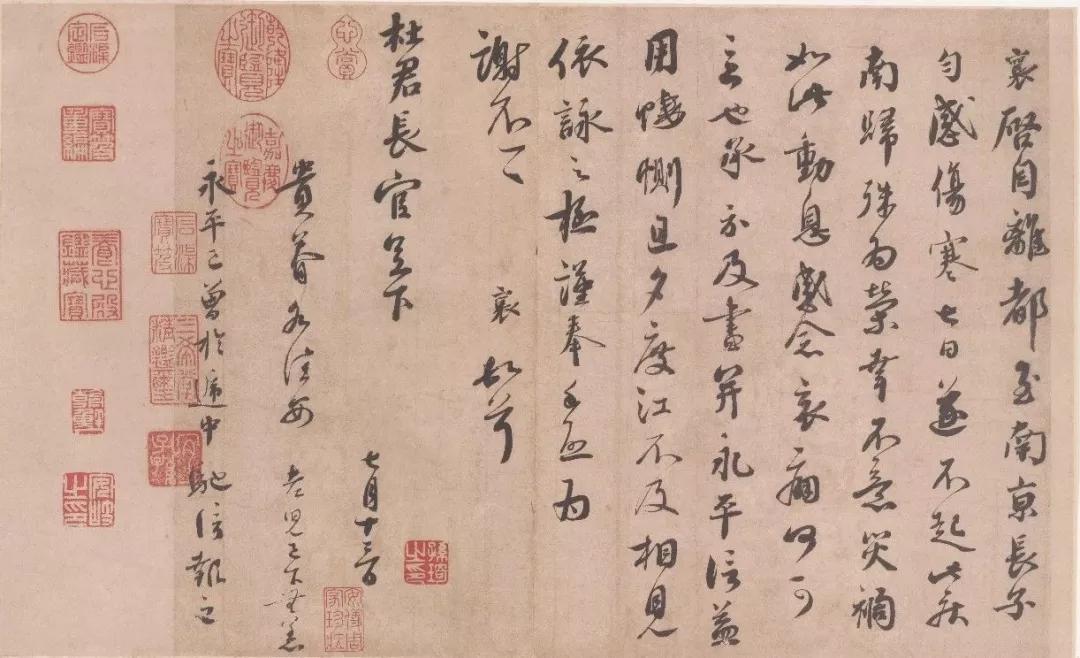 襄啓自離都至南京長子
勻感傷寒七日遂不起此疾
南歸殊為榮幸不意災禍
如此動息感念哀痛何可
言也承示及書并永平信益
用悽惻旦夕度江不及相見
依詠之極謹奉手啓為
謝不一一 襄頓首
杜君長官足下
七月十三日
貴眷各佳安 老兒已下無恙
永平已曾於遞中馳信報之
乾隆御覽之寶
嘉慶御覽之寶
石渠寶笈
三希堂精鑑璽
宜子孫
石渠定鑑
寶笈重編
養心殿鑑藏寶
安岐之印
安儀周家珍藏